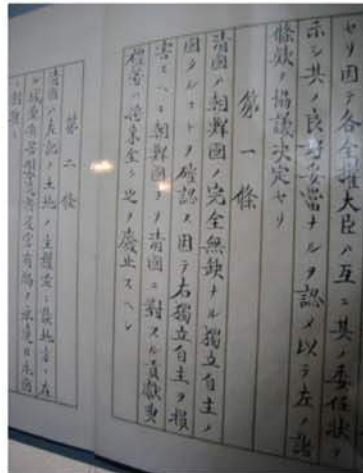 セリ因テ各全権大臣ハ互ニ其ノ委任状ヲ
示シ其ノ良好妥當ナルヲ認メ以テ左ノ諸
條款ヲ協議決定セリ
第一條
清國ハ朝鮮國ノ完全無缺ナル獨立自主ノ
國タルコトヲ確認ス因テ右獨立自主ヲ損
害スヘキ朝鮮國ヨリ清國ニ對スル貢獻典
禮等ハ將来全ク之ヲ廢止スヘシ
第二條
清國ハ左記ノ土地ノ主權並ニ該地方ニ在
ル城壘兵器製造所及官有物ヲ永遠日本國
ニ割與ス